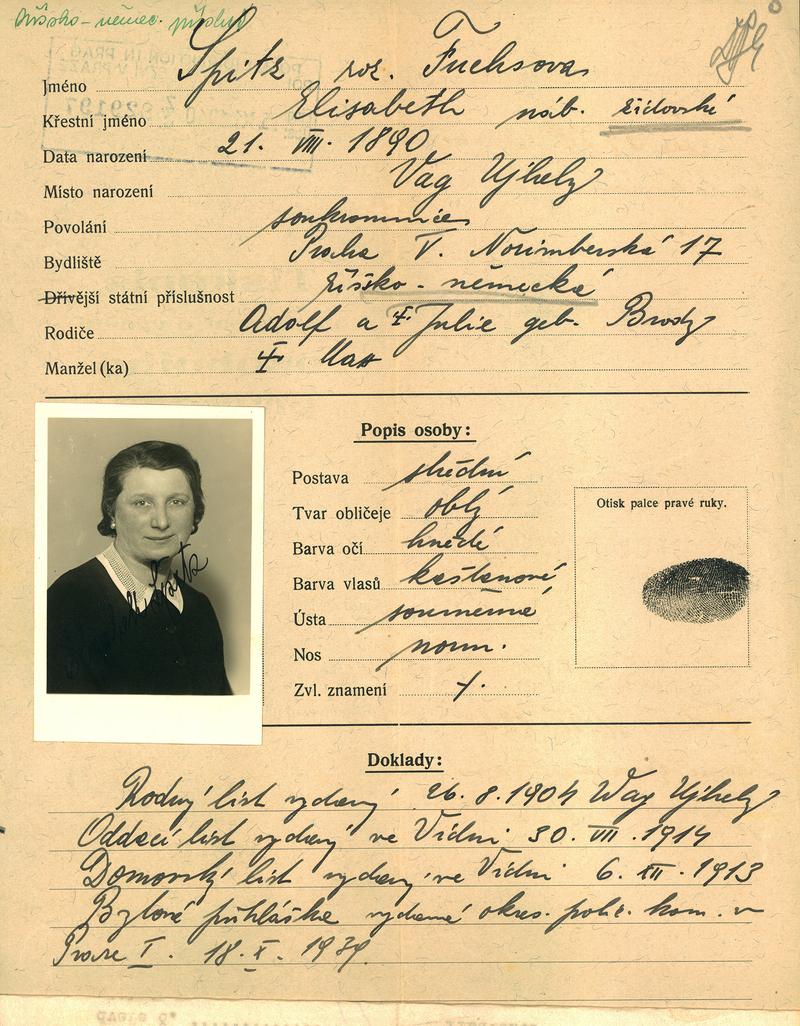 říšsko-němec. přísluš
Jméno Spitz roz. Fuchsova
Křestní jméno Elisabeth náb. židovské
Data narození 21. VIII. 1890
Místo narození Vag Ujhely
Povolání soukromnice
Bydliště Praha V. Norimberská 17
Dřívější státní příslušnost říšsko-německá
Rodiče Adolf a Julie geb. Brody
Manžel (ka) Max
Popis osoby:
Postava střední
Tvar obličeje oblý
Barva očí hnědé
Barva vlasů kaštanové
Ústa souměrné
Nos norm.
Zvl. znamení
Otisk palce pravé ruky.
Spitz
Doklady:
Rodný list vydaný 26. 8. 1904 Wag Ujhely
Oddací list vydaný ve Vídni 30. VIII. 1914
Domovský list vydaný ve Vídni 6. XII. 1913
Bytová přihláška vydaná okres. polic. kom. v
Praze I. 18. X. 1939.